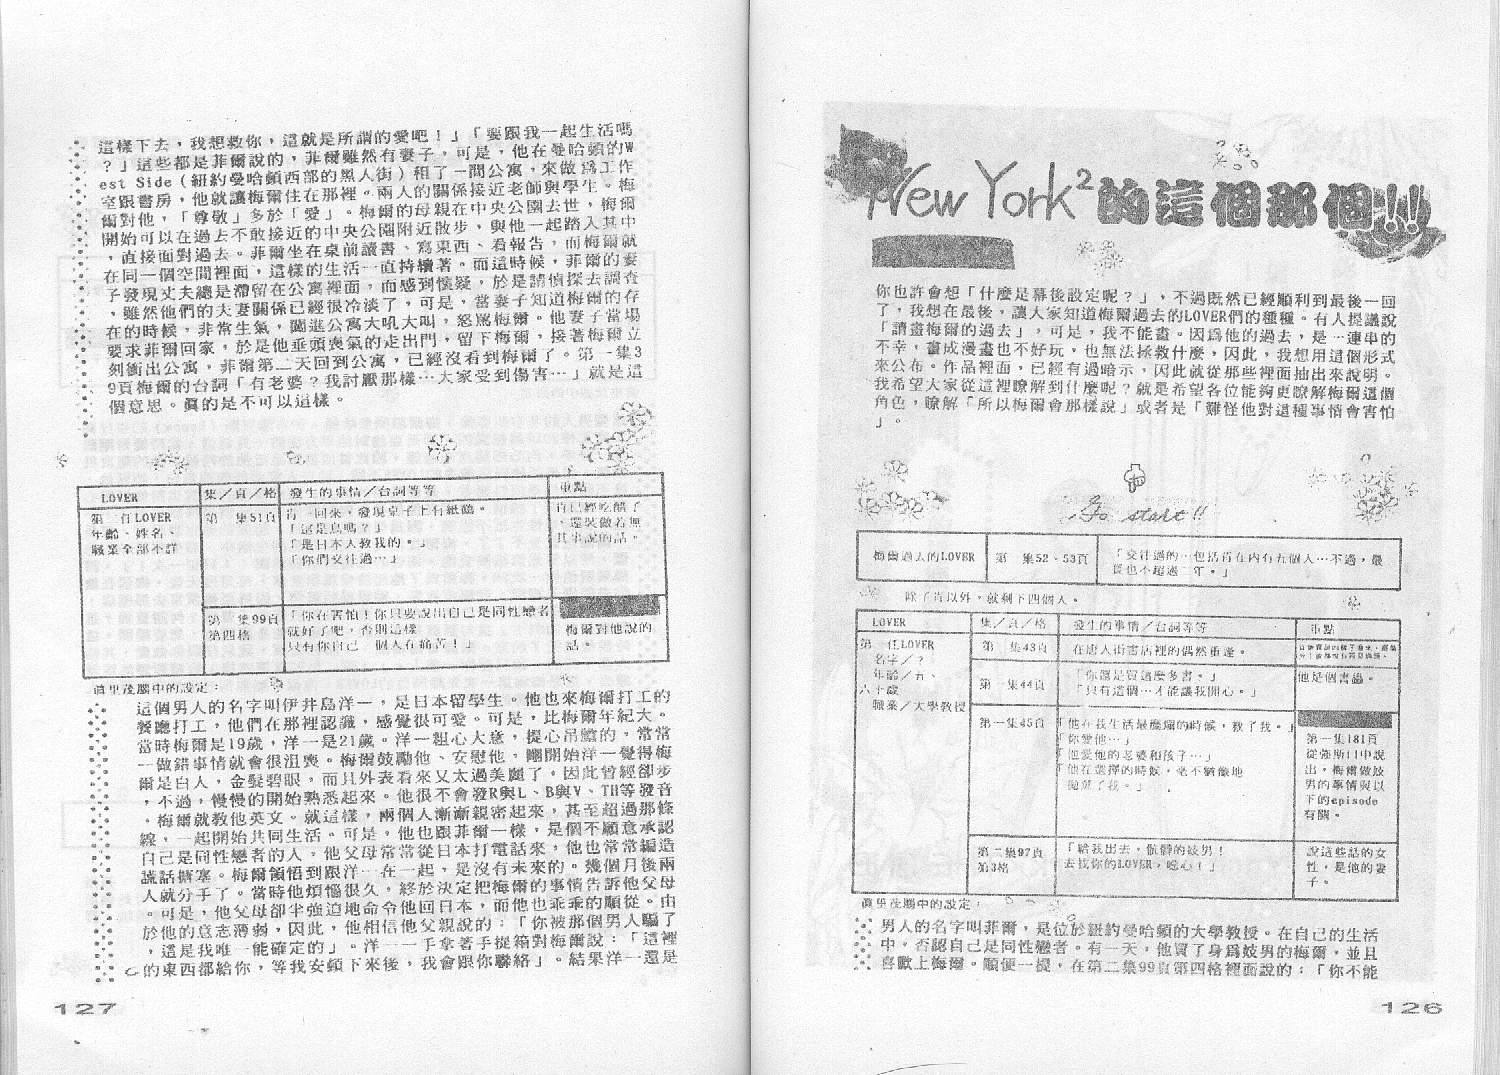 New York²的這個那個!!
你也許會想「什麼是幕後設定呢？」，不過既然已經順利到最後一回
了，我想在最後，讓人家知道梅爾過去的LOVER們的種種。有人提議說
「請畫梅爾的過去」，可是，我不能畫。因爲他的過去，是一連串的
不幸，畫成漫畫也不好玩，也無法拯救什麼，因此，我想用這個形式
來公布。作品裡面，已經有過暗示，因此就從那些裡面抽出來說明。
我希望大家從這裡瞭解到什麼呢？就是希望各位能夠更瞭解梅爾這個
角色，瞭解「所以梅爾會那樣說」或者是「難怪他對這種事情會害怕
」。
Go start!!
梅爾過去的LOVER
第一集52、53頁
「交往過的…包括肯在內有五個人…不過，最
長也不超過二年。」
除了肯以外，就剩下四個人。
LOVER
集／頁／格
發生的事情／台詞等等
重點
第一任LOVER
名字／？
年齡／五、
六十歲
職業／大學教授
第一集43頁
在唐人街書店裡的偶然重逢。
第一集44頁
「你還是買這麼多書。」
「只有這個…才能讓我開心。」
他是個書蟲。
第一集45頁
「他在我生活最糜爛的時候，救了我。」
「你愛他…」
「他愛他的老婆和孩子…」
「他在選擇的時候，毫不猶豫地
拋棄了我。」
第一集181頁
從強斯口中說
出，梅爾做妓
男的事情與以
下的episode
有關。
第二集97頁
第3格
「給我出去，骯髒的妓男！
去找你的LOVER，噁心！」
說這些話的女
性，是他的妻
子。
眞里茂腦中的設定：
男人的名字叫菲爾，是位於紐約曼哈頓的大學教授。在自己的生活
中，否認自己是同性戀者。有一天，他買了身爲妓男的梅爾，並且
喜歡上梅爾。順便一提，在第二集99頁第四格裡面說的：「你不能
126
這樣下去，我想救你，這就是所謂的愛吧！」「要跟我一起生活嗎
？」這些都是菲爾說的，菲爾雖然有妻子，可是，他在曼哈頓的W
est Side（紐約曼哈頓西部的黑人街）租了一間公寓，來做爲工作
室跟書房，他就讓梅爾住在那裡。兩人的關係接近老師與學生。梅
爾對他，「尊敬」多於「愛」。梅爾的母親在中央公園去世，梅爾
開始可以在過去不敢接近的中央公園附近散步，與他一起踏入其中
，直接面對過去。菲爾坐在桌前讀書、寫東西、看報告，而梅爾就
在同一個空間裡面，這樣的生活一直持續著。而這時候，菲爾的妻
子發現丈夫總是滯留在公寓裡面，而感到懷疑，於是請偵探去調查
，雖然他們的夫妻關係已經很冷淡了，可是，當妻子知道梅爾的存
在的時候，非常生氣，闖進公寓大吼大叫，怒罵梅爾。他妻子當場
要求菲爾回家，於是他垂頭喪氣的走出門，留下梅爾，接著梅爾立
刻衝出公寓，菲爾第二天回到公寓，已經沒看到梅爾了。第一集3
9頁梅爾的台詞「有老婆？我討厭那樣…大家受到傷害…」就是這
個意思。眞的是不可以這樣。
LOVER
集／頁／格
發生的事情／台詞等等
重點
第二任LOVER
年齡、姓名、
職業全部不詳
第一集51頁
肯一回來，發現桌子上有紙鶴。
「這是鳥嗎？」
「是日本人教我的。」
「你們交往過…」
肯已經吃醋了
，還裝做若無
其事說的話。
第二集99頁
第四格
「你在害怕！你只要說出自己是同性戀者
就好了吧，否則這樣
只有你自己一個人在痛苦！」
梅爾對他說的
話。
眞里茂腦中的設定：
這個男人的名字叫伊井島洋一，是日本留學生。他也來梅爾打工的
餐廳打工，他們在那裡認識，感覺很可愛。可是，比梅爾年紀大。
當時梅爾是19歲，洋一是21歲。洋一粗心大意，提心吊膽的，常常
一做錯事情就會很沮喪。梅爾鼓勵他、安慰他，剛開始洋一覺得梅
爾是白人，金髮碧眼，而且外表看來又太過美麗了，因此曾經卻步
，不過，慢慢的開始熟悉起來。他很不會發R與L、B與V、TH等發音
。梅爾就教他英文。就這樣，兩個人漸漸親密起來，甚至超過那條
線，一起開始共同生活。可是，他也跟菲爾一樣，是個不願意承認
自己是同性戀者的人，他父母常常從日本打電話來，他也常常編造
謊話搪塞。梅爾領悟到跟洋一在一起，是沒有未來的。幾個月後兩
人就分手了。當時他煩惱很久，終於決定把梅爾的事情告訴他父母
。可是，他父母卻半強迫地命令他回日本，而他也乖乖的順從。由
於他的意志薄弱，因此，他相信他父親說的：「你被那個男人騙了
，這是我唯一能確定的」。洋一一手拿著手提箱對梅爾說：「這裡
的東西都給你，等我安頓下來後，我會跟你聯絡」。結果洋一還是
127